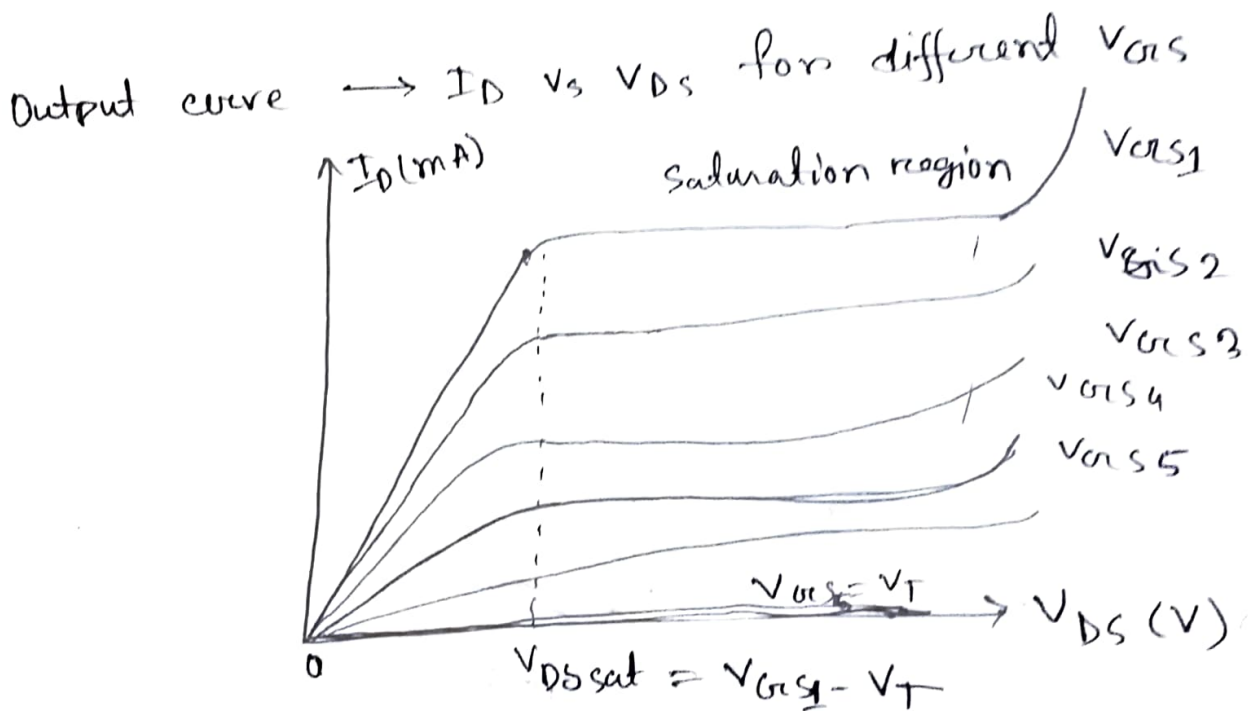 Output curve → ID Vs VDS for different VGS
ID(mA)
saturation region
VGS1
VGS2
VGS3
VGS4
VGS5
VGS = VT
VDS (V)
0
VDSsat = VGS1 - VT